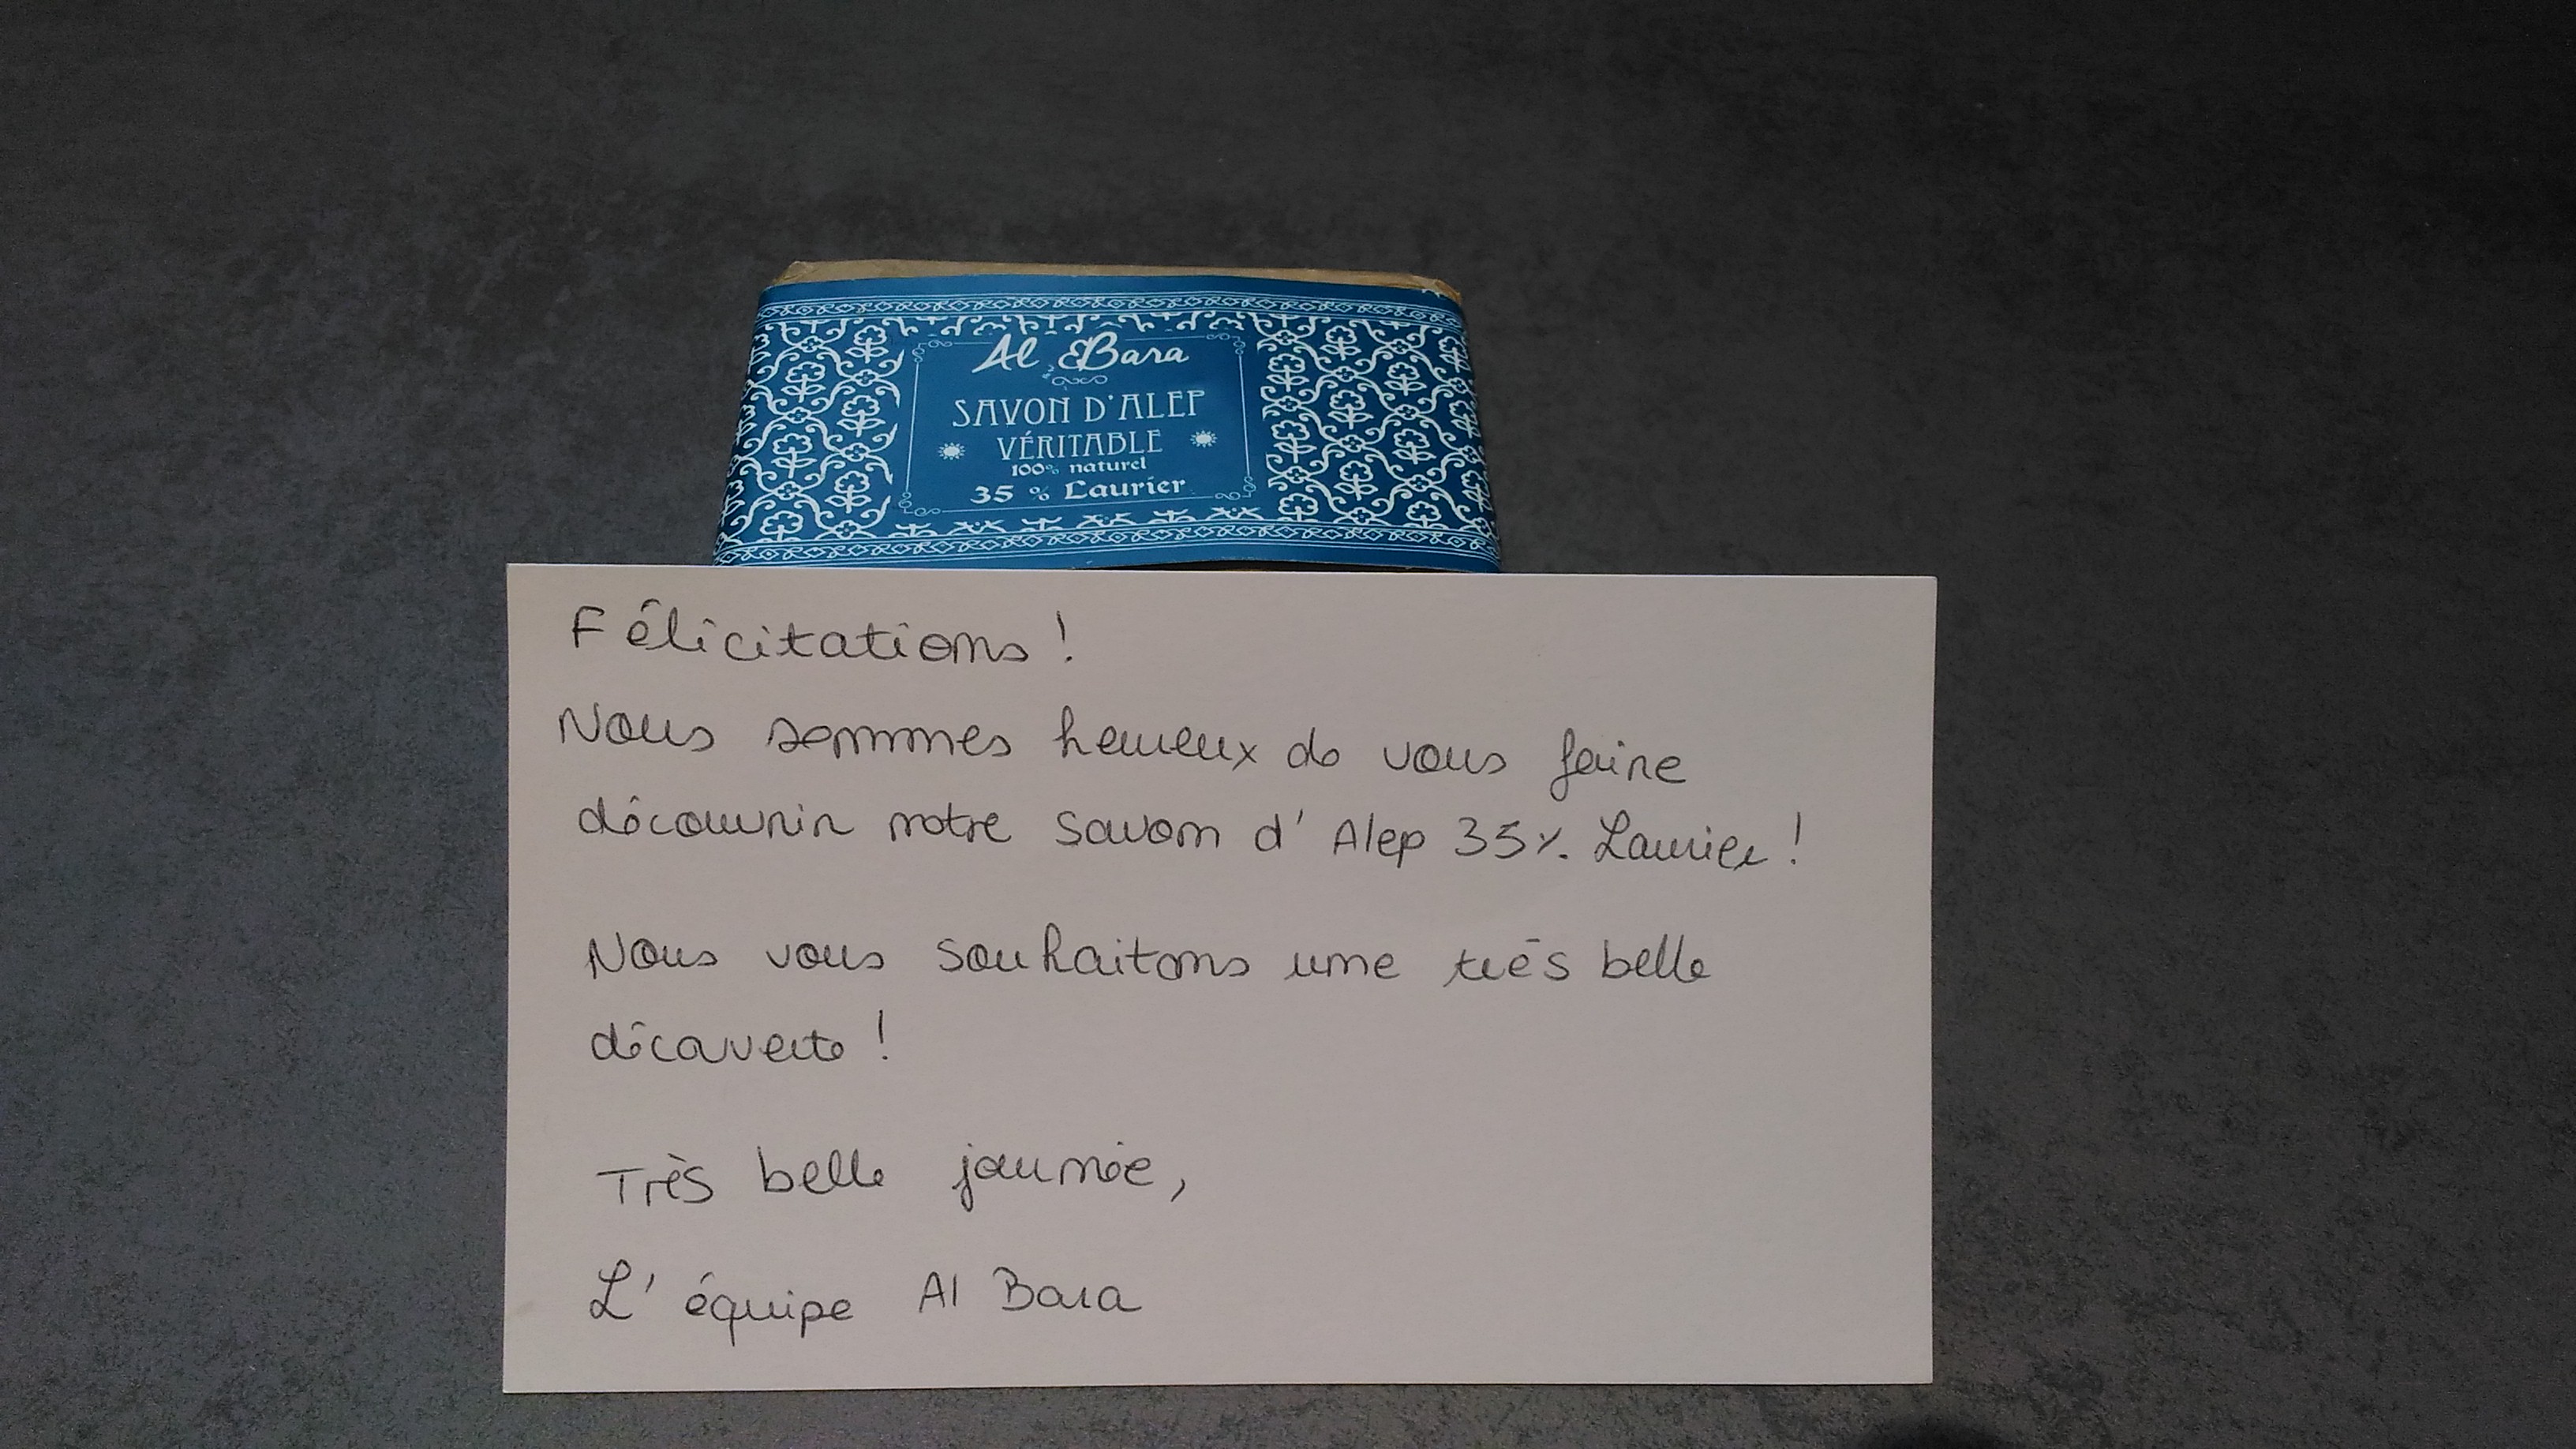 Al Bara
SAVON D'ALEP
VÉRITABLE
100% naturel
35 % Laurier
Félicitations !
Nous sommes heureux de vous faire
découvrir notre savon d'Alep 35%. Laurier !
Nous vous souhaitons une très belle
découverte !
Très belle journée,
L'équipe Al Bara